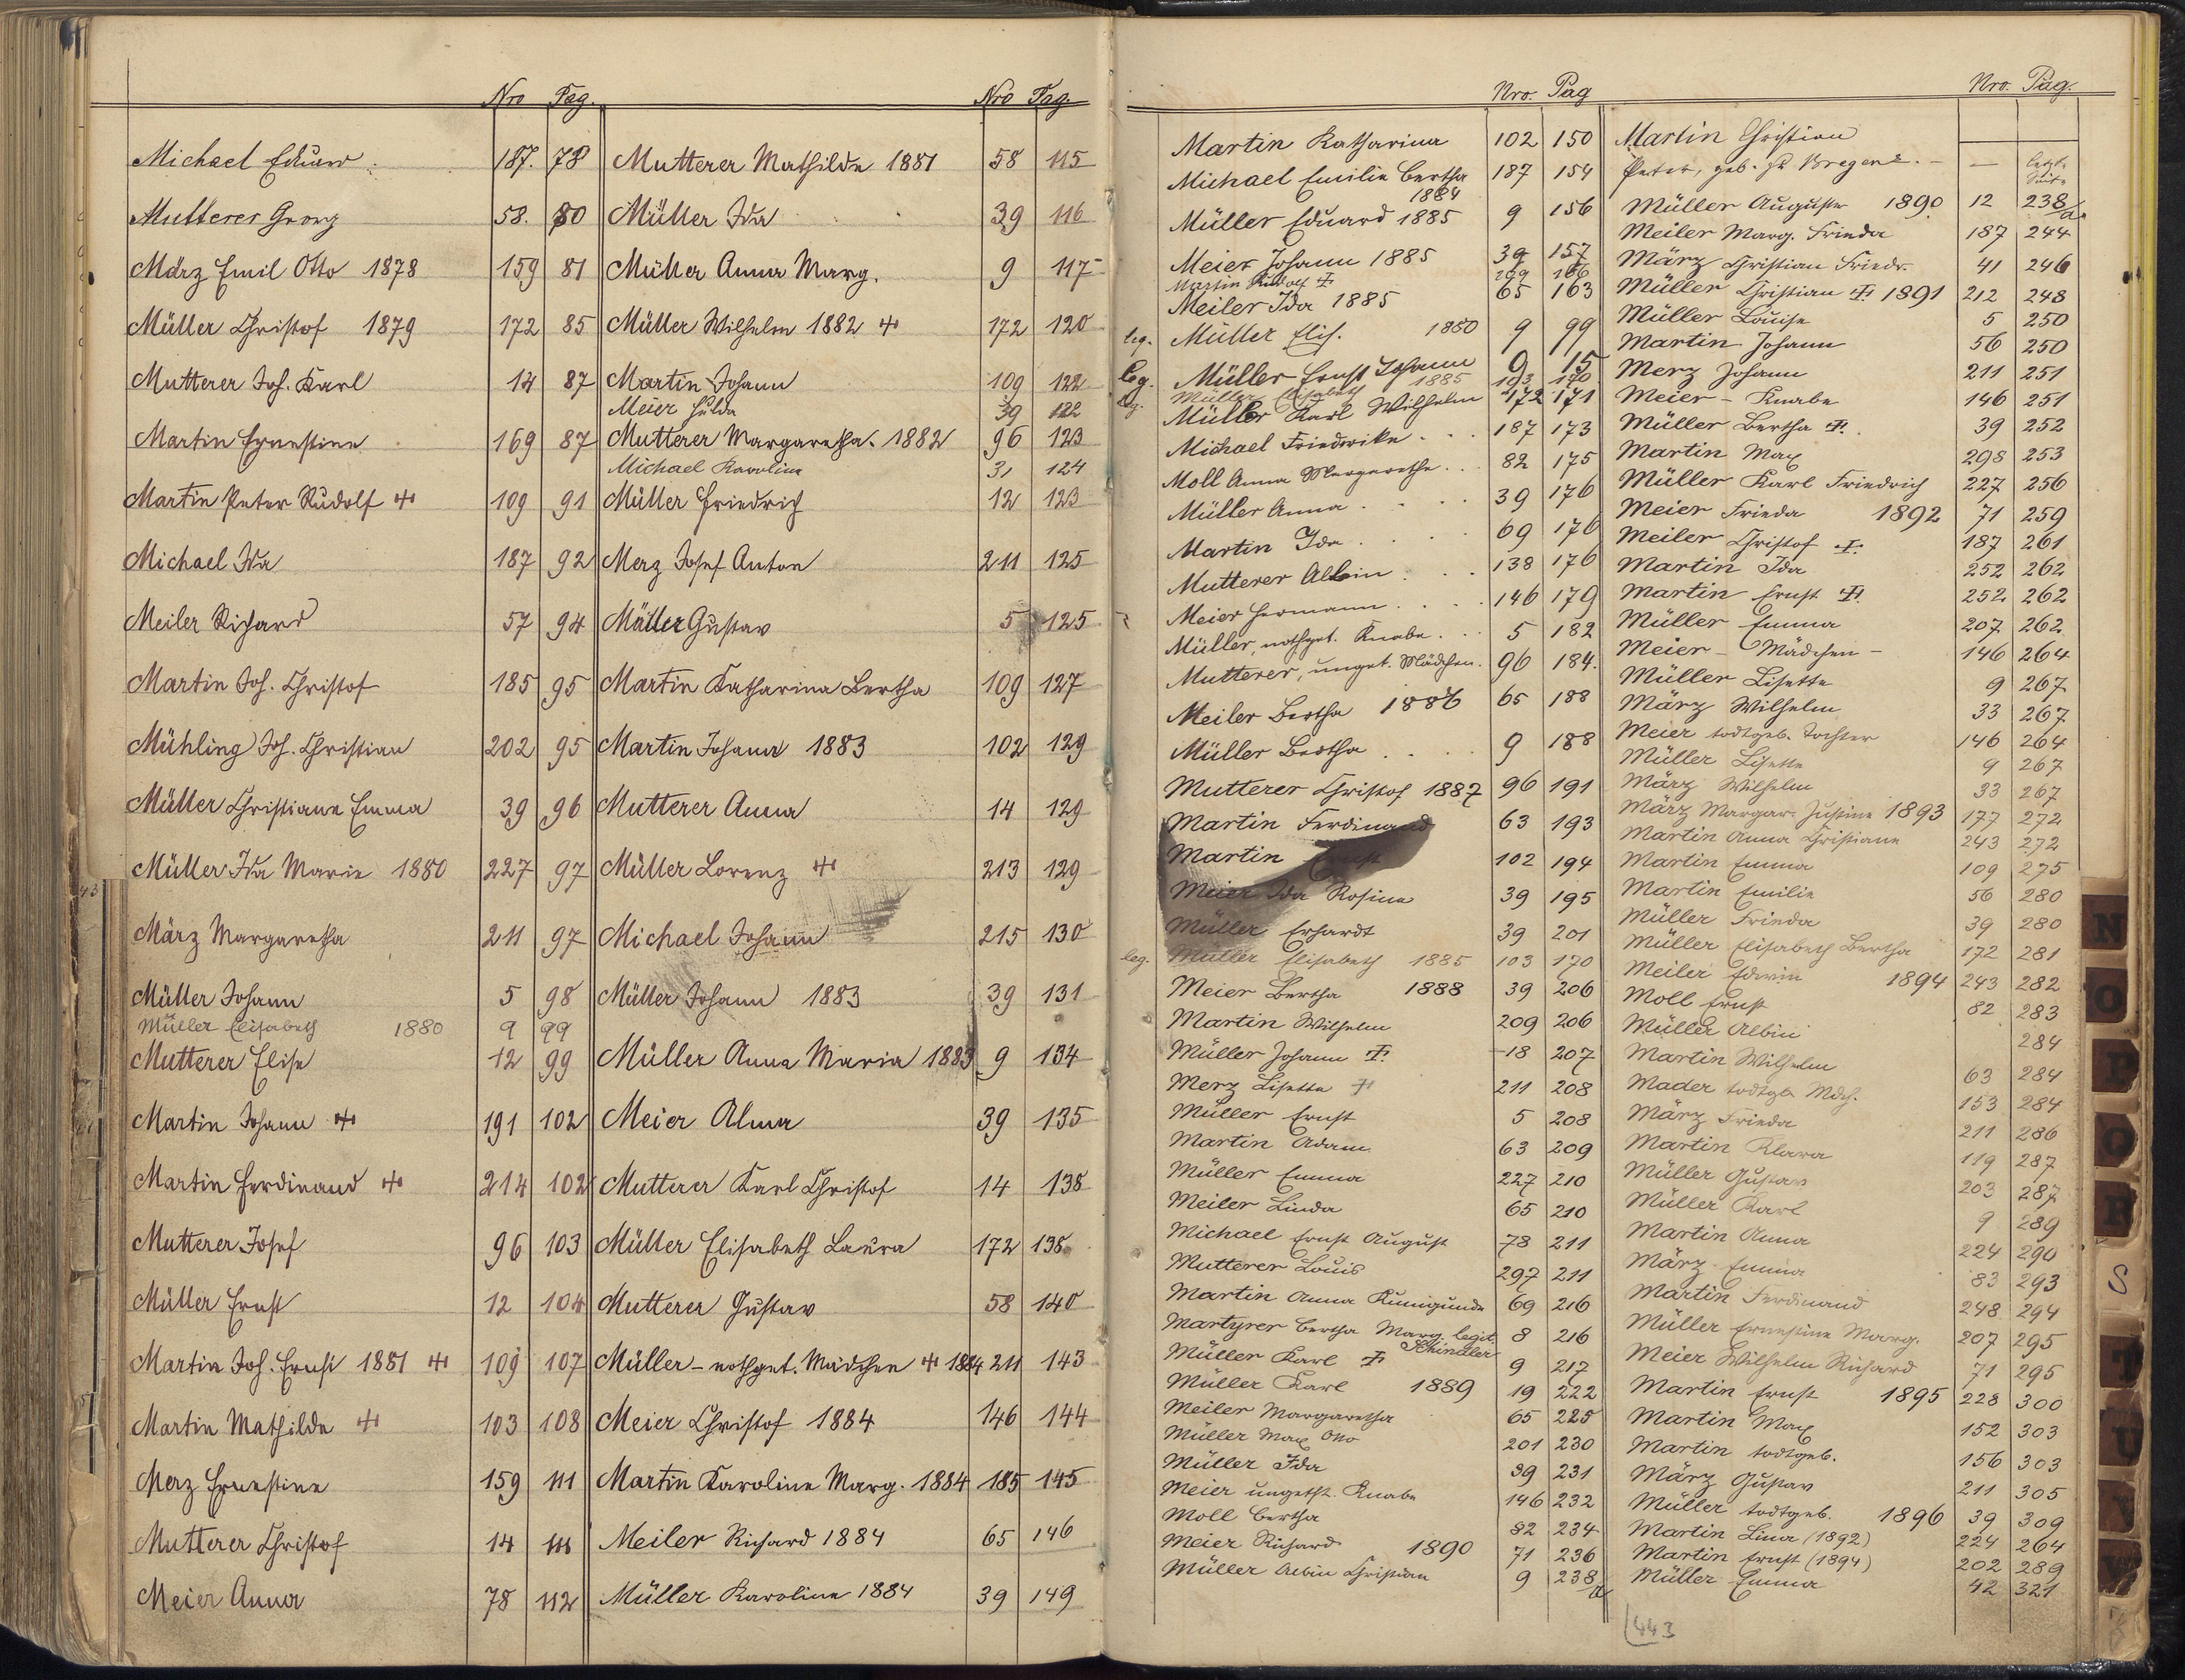 Nro Pag.
Michael Eduard. 187. 78
Mutterer Georg 58. 80
März Emil Otto 1878 159 81
Müller Christof 1879 172 85
Mutterer Joh. Karl 14 87
Martin Ernestine 169 87
Martin Peter Rudolf ✝ 109 91
Michael Ida 187 92
Meiler Richard 57 94
Martin Joh. Christof 185 95
Mühling Joh. Christian 202 95
Müller Christiane Emma 39 96
Müller Ida Marie 1880 227 97
März Margaretha 211 97
Müller Johann 5 98
Müller Elisabeth 1880 9 99
Mutterer Elise 12 99
Martin Johann ✝ 191 102
Martin Ferdinand ✝ 214 102
Mutterer Josef 96 103
Müller Ernst 12 104
Martin Joh. Ernst 1881 ✝ 109 107
Martin Mathilde ✝ 103 108
Merz Ernestine 159 111
Mutterer Christof 14 111
Meier Anna 78 112
Nro Pag.
Mutterer Mathilde 1881 58 115
Müller Ida 39 116
Müller Anna Marg. 9 117
Müller Wilhelm 1882 ✝ 172 120
Martin Johann 109 122
Meier Hulda 39 122
Mutterer Margaretha. 1882 96 123
Michael Karoline 31 124
Müller Friedrich 12 123
Merz Josef Anton 211 125
Müller Gustav 5 125
Martin Katharina Bertha 109 127
Martin Johann 1883 102 129
Mutterer Anna 14 129
Müller Lorenz ✝ 213 129
Michael Johann 215 130
Müller Johann 1883 39 131
Müller Anna Maria 1883 9 134
Meier Alma 39 135
Mutterer Karl Christof 14 138
Müller Elisabeth Laura 172 138
Mutterer Gustav 58 140
Müller - nothget. Mädchen ✝ 1884 211 143
Meier Christof 1884 146 144
Martin Karoline Marg. 1884 185 145
Meiler Richard 1884 65 146
Müller Karoline 1884 39 149
Nro. Pag
Martin Katharina 102 150
Michael Emilie Bertha 187 154
1884
Müller Eduard 1885 9 156
Meier Johann 1885 39 157
Martin Rudolf ✝ 166
Meiler Ida 1885 65 163
leg. Müller Elis. 1880 9 99
leg. Müller Ernst Johann 9 15
leg. Müller Elisabeth 1885 103 170
Müller Karl Wilhelm 172 171
Michael Friederike . . . 187 173
Moll Anna Margarethe . . 82 175
Müller Anna . . . . 39 176
Martin Ida . . . . 69 176
Mutterer Albin . . . 138 176
Meier Hermann . . . . 146 179
Müller, nothget. Knabe . . 5 182
Mutterer, unget. Mädchen. 96 184.
Meiler Bertha 1886 65 188
Müller Bertha . . . 9 188
Mutterer Christof 1887 96 191
Martin Ferdinand 63 193
Martin Ernst 102 194
Meier Ida Rosina 39 195
Müller Erhardt 39 201
leg. Müller Elisabeth 1885 103 170
Meier Bertha 1888 39 206
Martin Wilhelm 209 206
Müller Johann ✝. 18 207
Merz Lisette ✝ 211 208
Müller Ernst 5 208
Martin Adam 63 209
Müller Emma 227 210
Meiler Linda 65 210
Michael Ernst August 78 211
Mutterer Louis 297 211
Martin Anna Kunigunde 69 216
Martyrer Bertha Marg. legit. 8 216
Schindler
Müller Karl ✝ 9 217
Müller Karl 1889 19 222
Meiler Margaretha 65 225
Müller Max Otto 201 230
Müller Ida 39 231
Meier ungetft. Knabe 146 232
Moll Bertha 82 234
Meier Richard 1890 71 236
Müller Albin Christian 9 238/a
Nro. Pag.
Martin Christian
Peter, geb. zu Bregenz. - — letzte Seite
Müller Auguste 1890 12 238/a.
Meiler Marg. Frieda 187 244
März Christian Friedr. 41 246
Müller Christian ✝ 1891 212 248
Müller Louise 5 250
Martin Johann 56 250
Merz Johann 211 251
Meier - Knabe 146 251
Müller Bertha ✝. 39 252
Martin Max 298 253
Müller Karl Friedrich 227 256
Meier Frieda 1892 71 259
Meiler Christof ✝. 187 261
Martin Ida 252 262
Martin Ernst ✝. 252 262
Müller Emma 207 262
Meier - Mädchen - 146 264
Müller Lisette 9 267
März Wilhelm 33 267
Meier todtgeb. Tochter 146 264
Müller Lisette 9 267
März Wilhelm 33 267
März Margar. Justine 1893 177 272
Martin Anna Christiane 243 272
Martin Emma 109 275
Martin Emilie 56 280
Müller Frieda 39 280
Müller Elisabeth Bertha 172 281
Meiler Edwin 1894 243 282
Moll Ernst 82 283
Müller Albin 284
Martin Wilhelm 63 284
Mader todtgb. Mdch. 153 284
März Frieda 211 286
Martin Klara 119 287
Müller Gustav 203 287
Müller Karl 9 289
Martin Anna 224 290
März Emma 83 293
Martin Ferdinand 248 294
Müller Ernestine Marg. 207 295
Meier Wilhelm Richard 71 295
Martin Ernst 1895 228 300
Martin Max 152 303
Martin todtgeb. 156 303
März Gustav 211 305
Müller todtgeb. 1896 39 309
Martin Lina (1892) 224 264
Martin Ernst (1894) 202 289
Müller Emma 42 321
443
N
O
P
Q
R
S
T
U
V